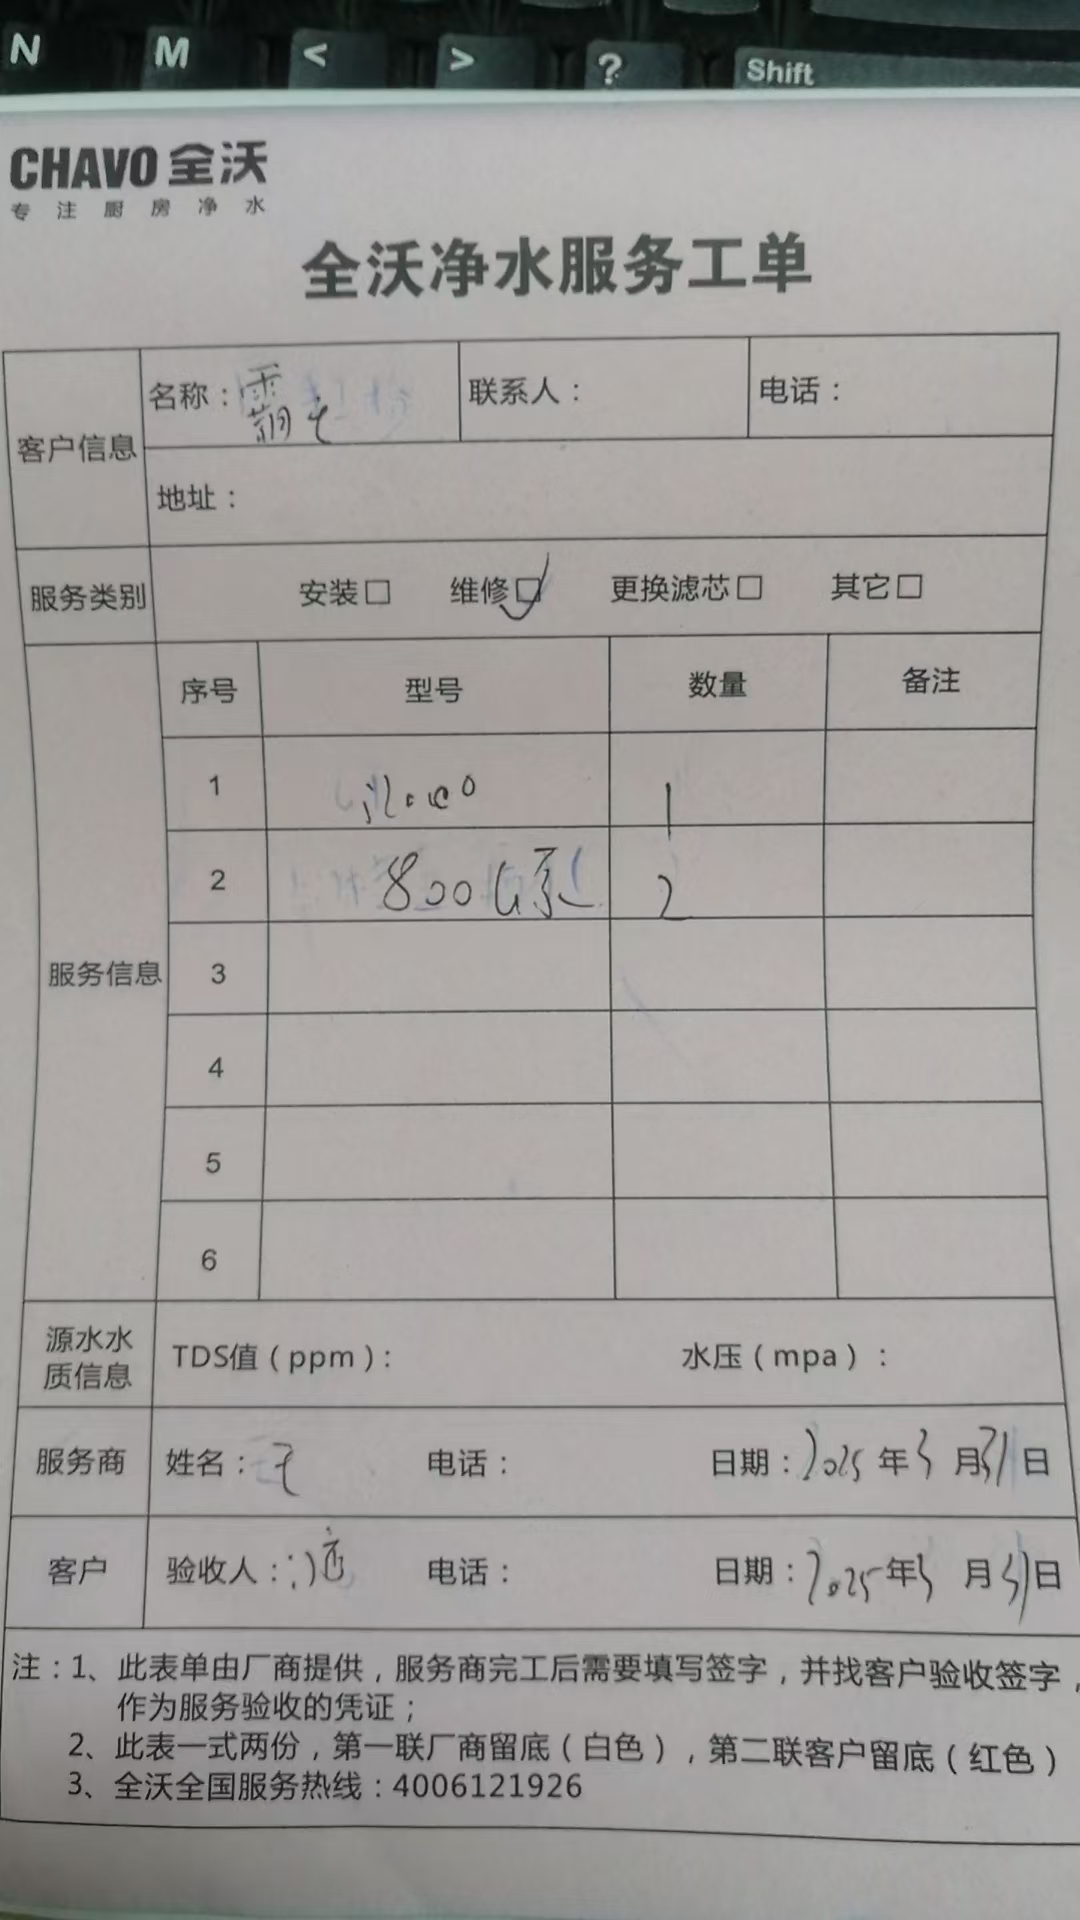 N M < > ? Shift
CHAVO 全沃
专注厨房净水
全沃净水服务工单
客户信息 名称：霸七 联系人： 电话：
地址：
服务类别 安装□ 维修☑ 更换滤芯□ 其它□
服务信息 序号 型号 数量 备注
1 1
2 800G泵 2
3
4
5
6
源水水质信息 TDS值（ppm）： 水压（mpa）：
服务商 姓名：王 电话： 日期：2025年3月31日
客户 验收人： 电话： 日期：2025年3月31日
注：1、此表单由厂商提供，服务商完工后需要填写签字，并找客户验收签字，
作为服务验收的凭证；
2、此表一式两份，第一联厂商留底（白色），第二联客户留底（红色）
3、全沃全国服务热线：4006121926